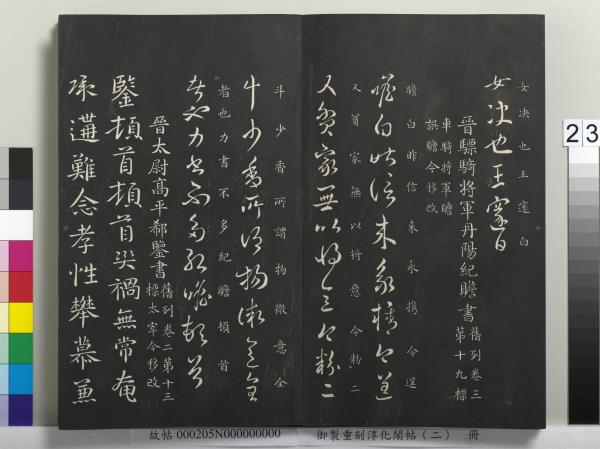 女決也王邃白
女決也王邃白
晉驃騎將軍丹陽紀瞻書
舊列卷三第十九標
車騎將軍瞻
誤贍今移改
瞻白昨信來永攜今逞
瞻白昨信來永攜今逞
又貧家無以將意今粉二
又貧家無以將意今粉二
斗少香所謂物微意全
斗少香所謂物微意全
者也力書不多紀瞻頓首
者也力書不多紀瞻頓首
晉太尉高平郗鑒書
舊列卷二第十三
標太宰今移改
鑒頓首頓首災禍無常奄
承遘難念孝性攀慕兼
故帖 000205N000000000 御製重刻淳化閣帖(二) 冊
23